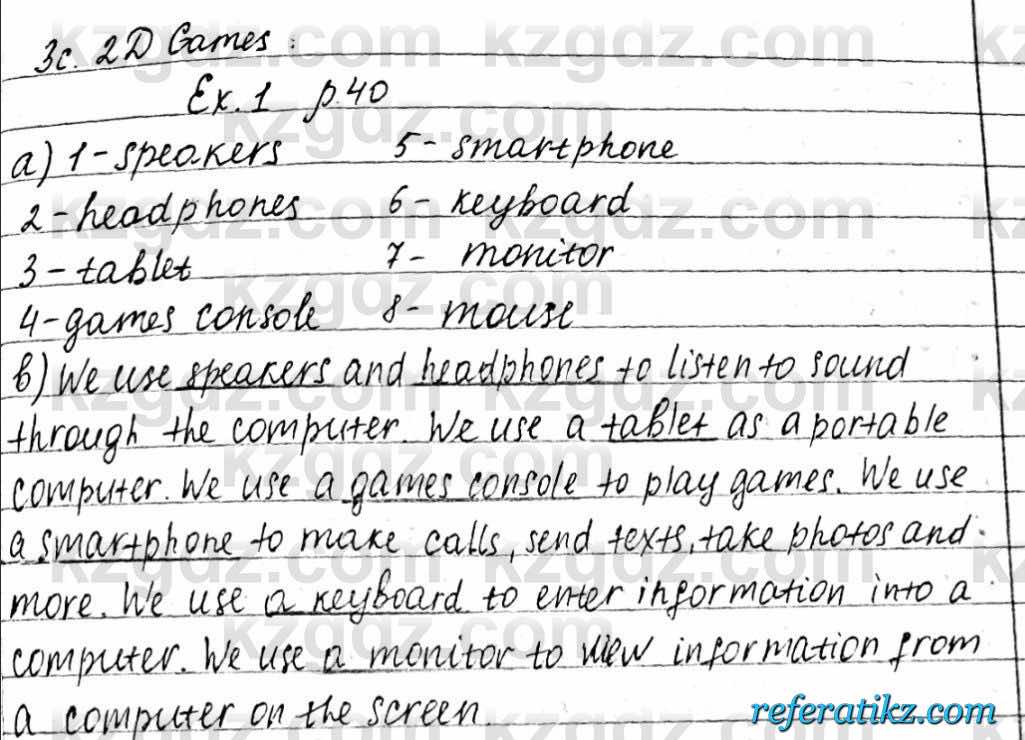 3c. 2D Games :
Ex. 1 p.40
a) 1-speakers 5- smartphone
2-headphones 6- keyboard
3-tablet 7- monitor
4-games console 8- mouse
b) We use speakers and headphones to listen to sound
through the computer. We use a tablet as a portable
computer. We use a games console to play games. We use
a smartphone to make calls, send texts, take photos and
more. We use a keyboard to enter information into a
computer. We use a monitor to view information from
a computer on the screen.
referatikz.com
kzgdz.com